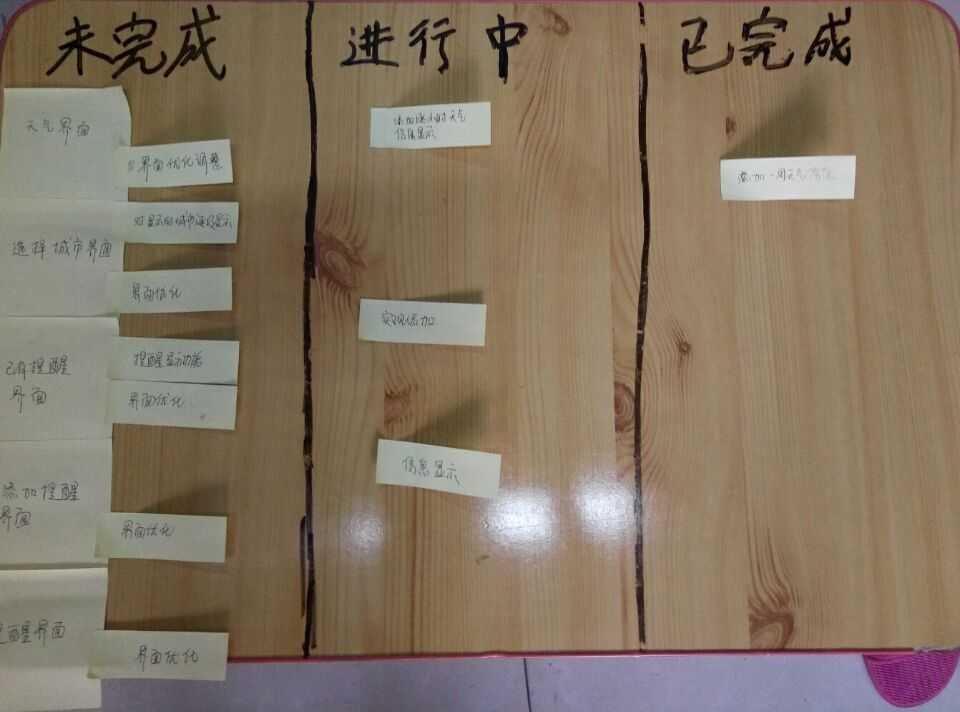 未完成
进行中
已完成
天气界面
界面优化调整
选择城市界面
界面优化
已有提醒
界面
提醒显示功能
界面优化
添加提醒
界面
界面优化
醒界面
界面优化
添加逐小时天气
信息显示
实现添加
信息显示
添加一周天气